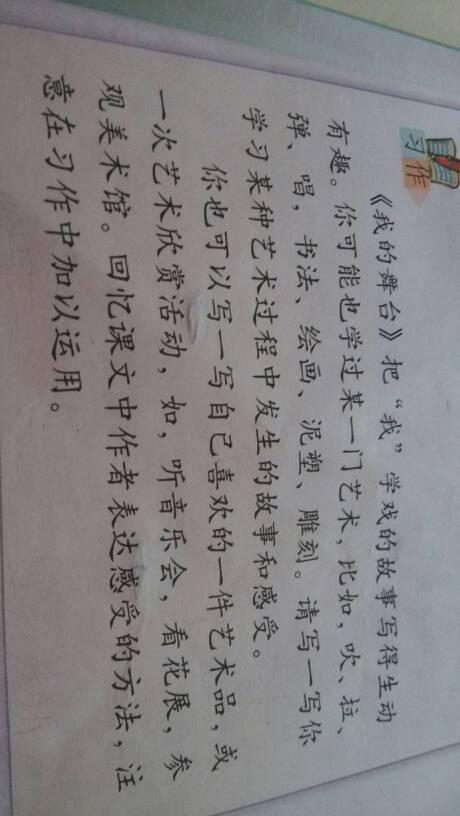 习作
《我的舞台》把“我”学戏的故事写得生动
有趣。你可能也学过某一门艺术，比如，吹、拉、
弹、唱，书法、绘画、泥塑、雕刻。请写一写你
学习某种艺术过程中发生的故事和感受。
你也可以写一写自己喜欢的一件艺术品，或
一次艺术欣赏活动，如，听音乐会，看花展，参
观美术馆。回忆课文中作者表达感受的方法，注
意在习作中加以运用。